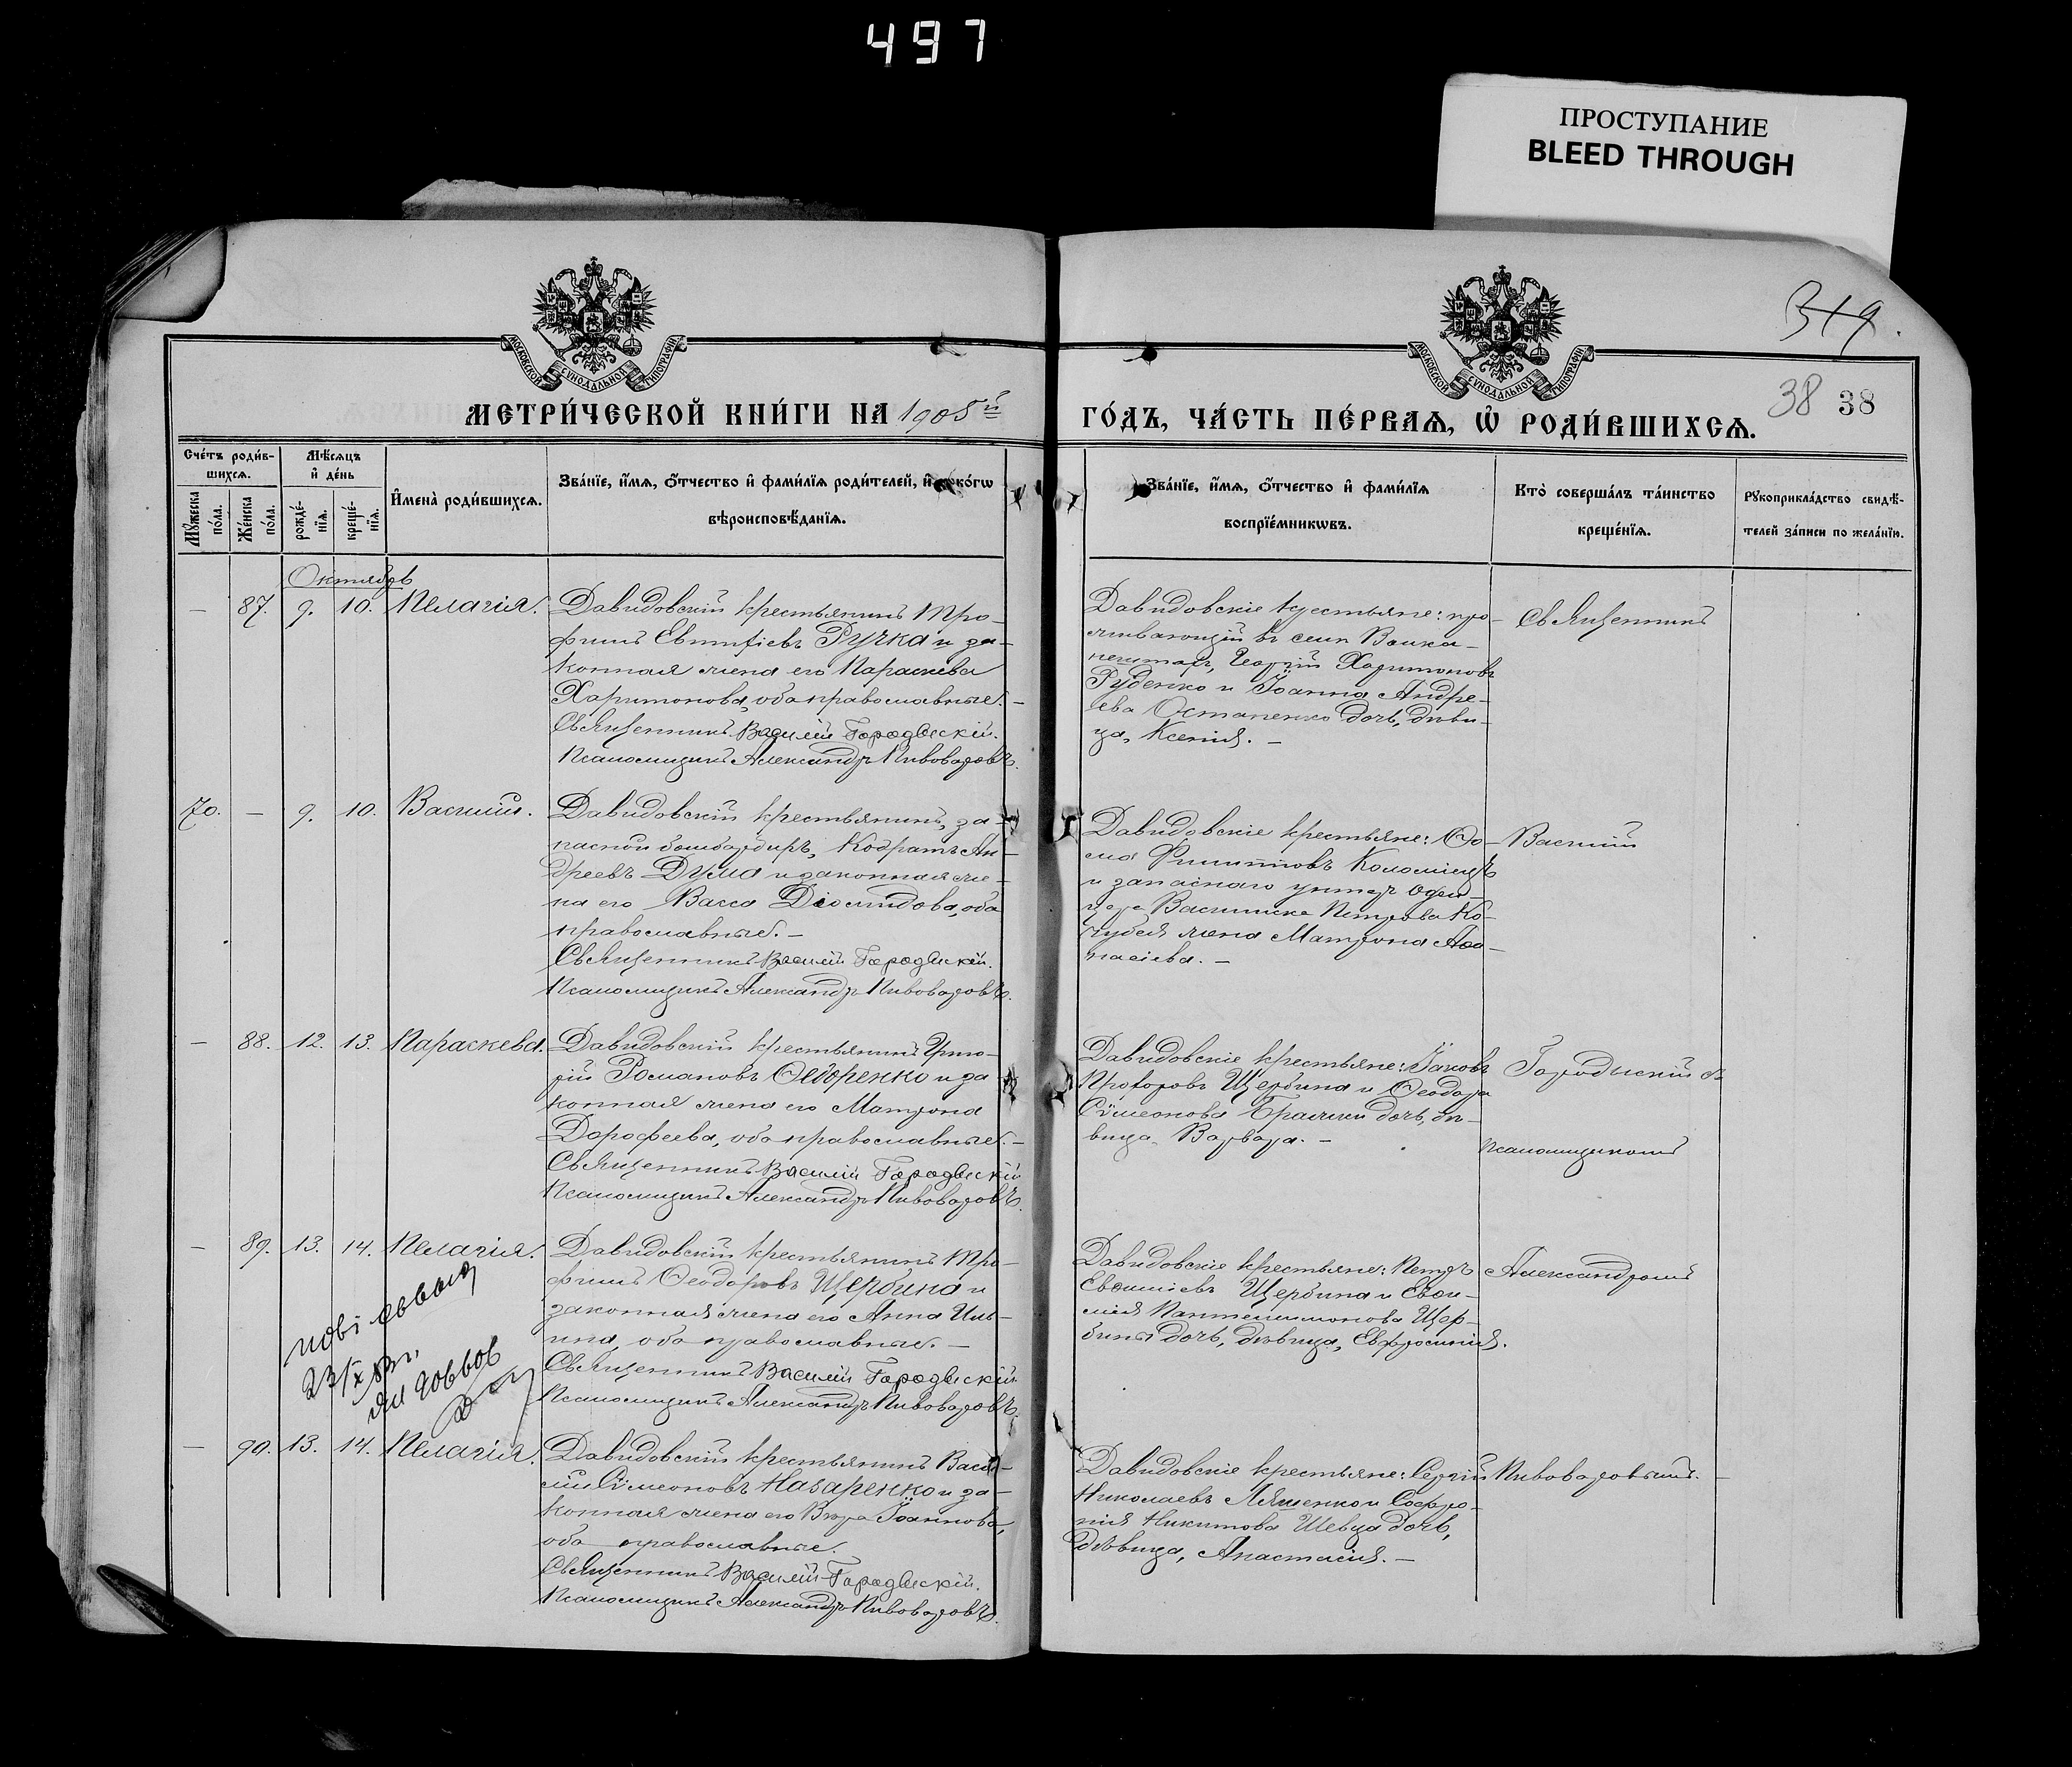 497
ПРОСТУПАНИЕ
BLEED THROUGH
319
МОСКОВСКОЙ СѴНОДАЛЬНОЙ ТИПОГРАФІИ
МОСКОВСКОЙ СѴНОДАЛЬНОЙ ТИПОГРАФІИ
38 38
МЕТРИ́ЧЕСКОЙ КНИ́ГИ НА 1905й
ГО́ДЪ, ЧА́СТЬ ПЕ́РВАѦ, Ѡ҆ РОДИ́ВШИХСѦ.
Счетъ роди́в-
шихсѧ.
Мꙋжеска по́ла.
Же́нска по́ла.
Мѣ́сѧцъ
и҆ де́нь
рожде́-
нїѧ.
креще́-
нїѧ.
И҆мена̀ роди́вшихсѧ.
Зва́нїе, и҆́мѧ, ѻ҆́тчество и҆ фами́лїѧ роди́телей, и҆ како́гѡ
вѣроисповѣ́данїѧ.
Зва́нїе, и҆́мѧ, ѻ҆́тчество и҆ фами́лїѧ
воспрїе́мникѡвъ.
Кто̀ соверша́лъ та́инство
креще́нїѧ.
Рꙋкоприкла́дство свидѣ́-
телей за́писи по жела́нїю.
Октябрь
— 87. 9. 10. Пелагія.
Давидовскій крестьянинъ Тро-
фимъ Евтихіевъ Ручка и за-
конная жена его Параскева
Харитонова, оба православные. —
Священникъ Василій Городыскій.
Псаломщикъ Александръ Пивоваровъ.
Давидовскіе крестьяне: про-
живающій въ
Георгій Харитоновъ
Руденко и Іоанна Андре-
ева Остапенко дочь, дѣви-
ца, Ксенія. —
Священникъ
70. — 9. 10. Василій.
Давидовскій крестьянинъ, за-
пасной бомбардиръ, Кодратъ Ан-
дреевъ Дума и законная же-
на его Васса Діомидова, оба
православные. —
Священникъ Василій Городыскій.
Псаломщикъ Александръ Пивоваровъ.
Давидовскіе крестьяне: Ѳо-
ма Филипповъ Коломіецъ
и запаснаго унтеръ офи-
цера Василиска Петрова Ко-
чубея жена Матрона Аѳа-
насіева. —
Василій
— 88. 12. 13. Параскева.
Давидовскій крестьянинъ Григо-
рій Романовъ Ѳедоренко и за
конная жена его Матрона
Дороѳеева, оба православные. —
Священникъ Василій Городыскій
Псаломщикъ Александръ Пивоваровъ.
Давидовскіе крестьяне: Іаковъ
Прохоровъ Щербина и Ѳеодора
Сѵмеонова дочь, дѣ-
вица, Варвара. —
Городыскій съ
псаломщикомъ
— 89. 13. 14. Пелагія.
Давидовскій крестьянинъ Тро-
фимъ Ѳеодоровъ Щербина и
законная жена его Анна Иль-
ина, оба православные. —
Священникъ Василій Городыскій
Псаломщикъ Александръ Пивоваровъ.
Давидовскіе крестьяне: Петръ
Евѳиміевъ Щербина и Евѳи-
мія Пантелеимонова Щер-
бины дочь, дѣвица, Евфросинія.
Александромъ
— 90. 13. 14. Пелагія.
Давидовскій крестьянинъ Васи-
лій Сѵмеоновъ Назаренко и за-
конная жена его Вѣра Іоаннова,
оба православные.
Священникъ Василій Городыскій.
Псаломщикъ Александръ Пивоваровъ.
Давидовскіе крестьяне: Сергій
Николаевъ Ляшенко и Софро-
нія Никитова Шевца дочь,
дѣвица, Анастасія. —
Пивоваровымъ. —